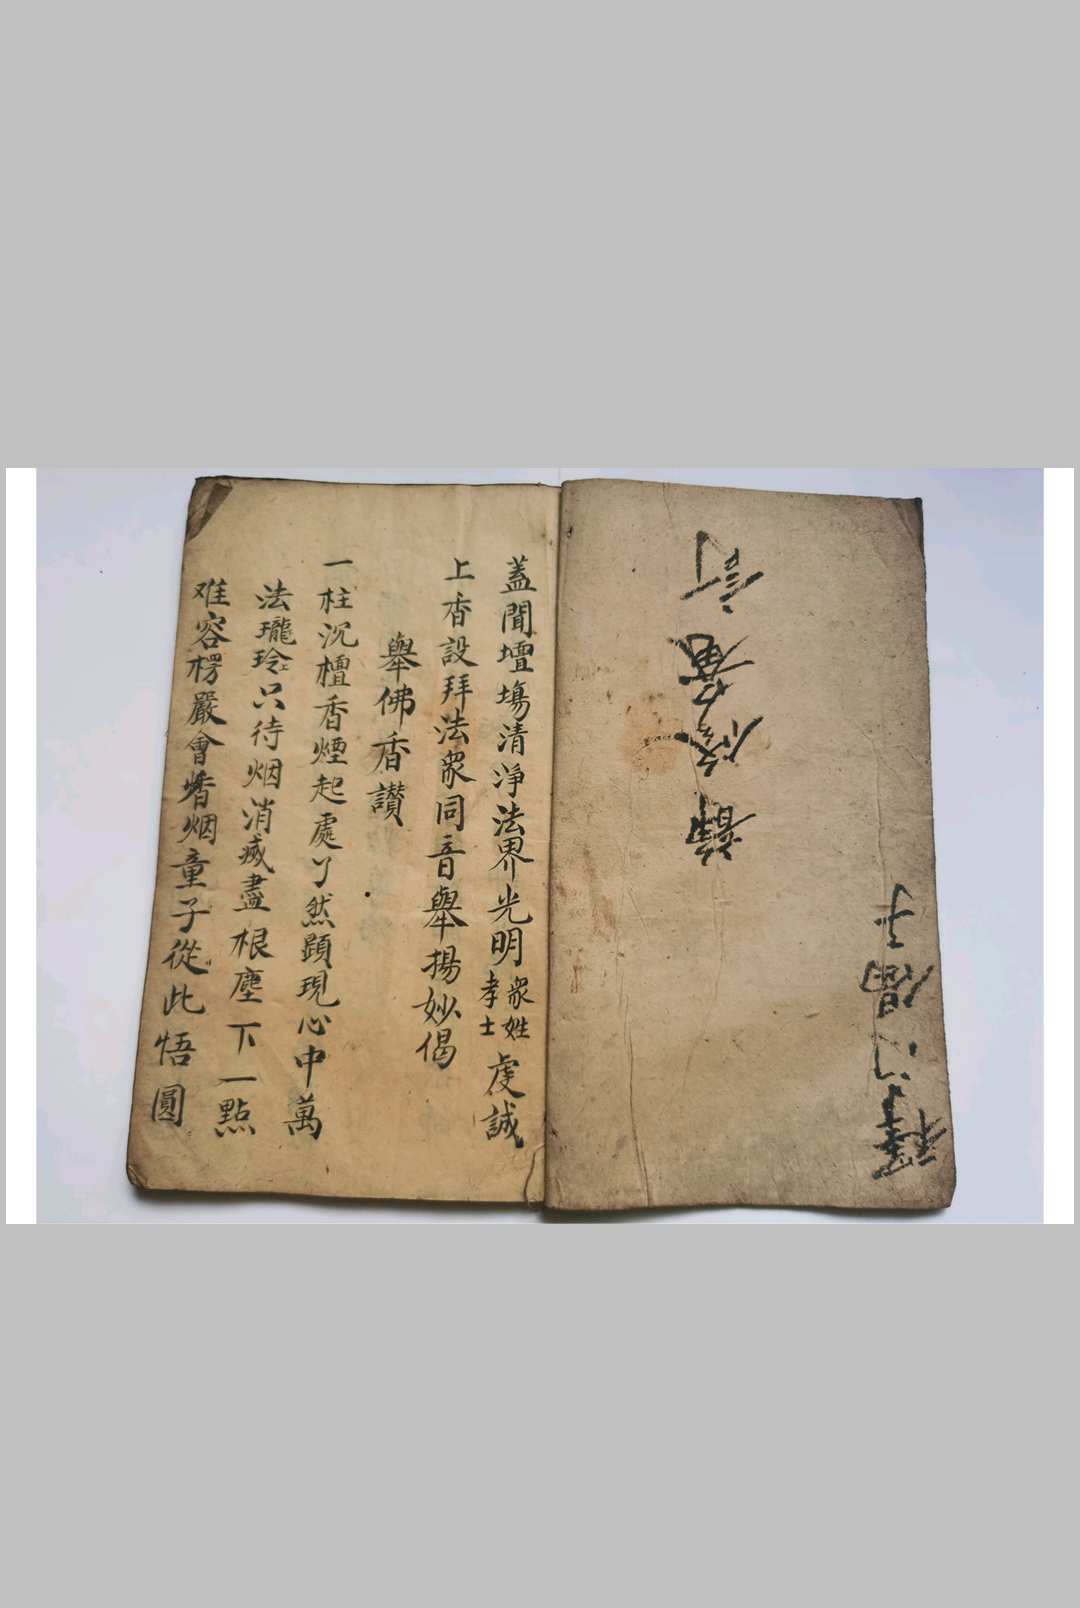 釋門偈子
蓋聞壇塲清淨法界光明眾姓孝士虔誠
上香設拜法眾同音舉揚妙偈
舉佛香讃
一柱沉檀香煙起處了然顕現心中萬
法瓏玲只待烟消滅盡根塵下一點
难容楞嚴會香烟童子從此悟圓